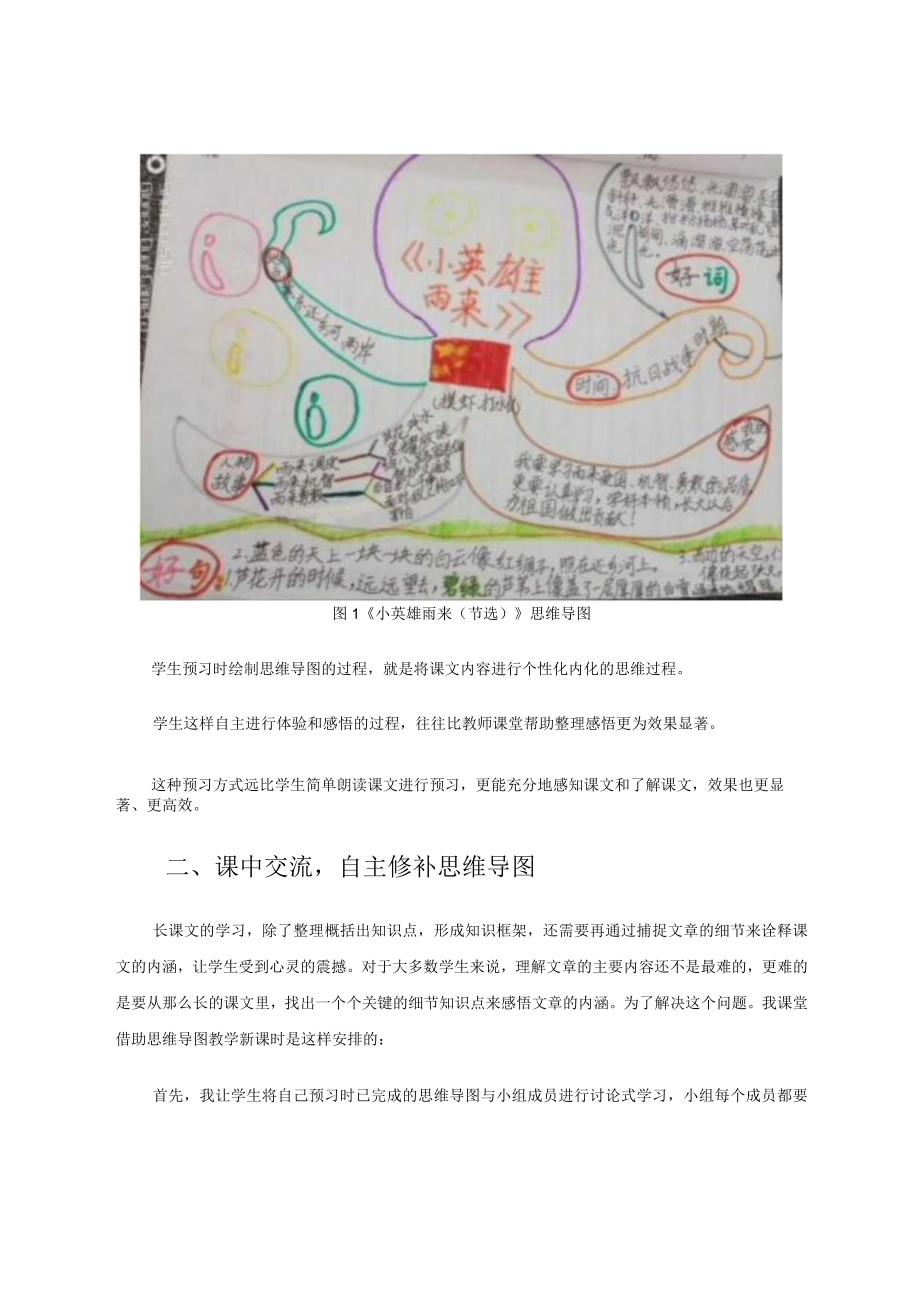 飘飘悠悠、光
斜斜、光滑滑
好词
《小英雄
雨来》
还乡河两岸
时间
抗日战争时期
(摸虾、打水仗)
我的
感受
人物
故事
雨来调皮
雨来机智
雨来勇敢
我要学习雨来爱国、机智、勇敢的品质,
更要认真学习,学好本领,长大以后
为祖国做出贡献!
好句
2.蓝色的天上一块一块的白云像红绸子,照在还乡河上。
1.芦花开的时候,远远望去,碧绿的芦苇上像盖了一层厚厚的白雪
图 1《小英雄雨来(节选)》思维导图
学生预习时绘制思维导图的过程,就是将课文内容进行个性化内化的思维过程。
学生这样自主进行体验和感悟的过程,往往比教师课堂帮助整理感悟更为效果显著。
这种预习方式远比学生简单朗读课文进行预习,更能充分地感知课文和了解课文,效果也更显
著、更高效。
二、课中交流,自主修补思维导图
长课文的学习,除了整理概括出知识点,形成知识框架,还需要再通过捕捉文章的细节来诠释课
文的内涵,让学生受到心灵的震撼。对于大多数学生来说,理解文章的主要内容还不是最难的,更难的
是要从那么长的课文里,找出一个个关键的细节知识点来感悟文章的内涵。为了解决这个问题。我课堂
借助思维导图教学新课时是这样安排的:
首先,我让学生将自己预习时已完成的思维导图与小组成员进行讨论式学习,小组每个成员都要